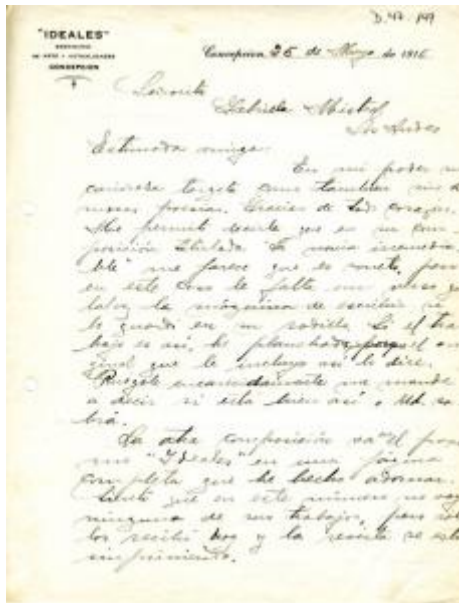 D.47-149
"IDEALES"
CONCEPCION
Concepcion 25 de Mayo de 1916
Señorita
Gabriela Mistral
Los Andes
Estimada amiga:
En mi poder su
cariñosa targeta como tambien sus
poesias. Gracias de todo corazon.
Me permito decirle que es su com-
posición titulada "La
ble" me parece que es soneto, pero
en este caso le falta un verso que
talvez la máquina de escribir se
lo guardó en su rodillo. Si el tra-
bajo es así, he planchado, porque el ori-
ginal que le incluyo así lo dice.
Ruegole encarecidamente me mande
a decir si esta bien así o Ud. sa-
brá.
La otra composición va en el proxi-
mo "Ideales" en una página
completa que he hecho adornar.
Siento que en este número no vaya
ninguno de sus trabajos, pero solo
los recibí hoy y la revista se está
imprimiendo.